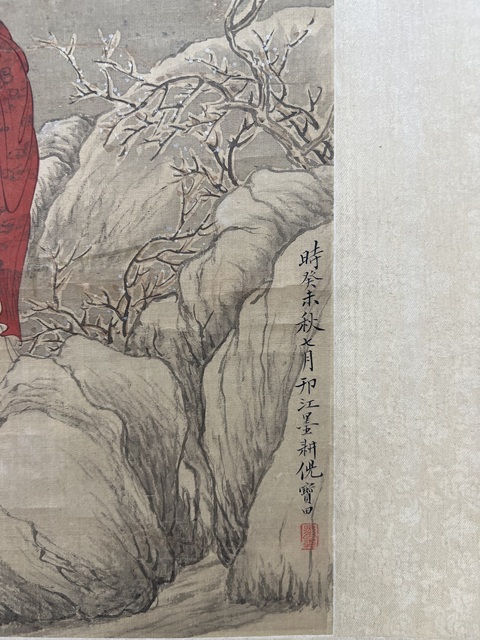 時癸未秋七月邗江墨耕倪寶田